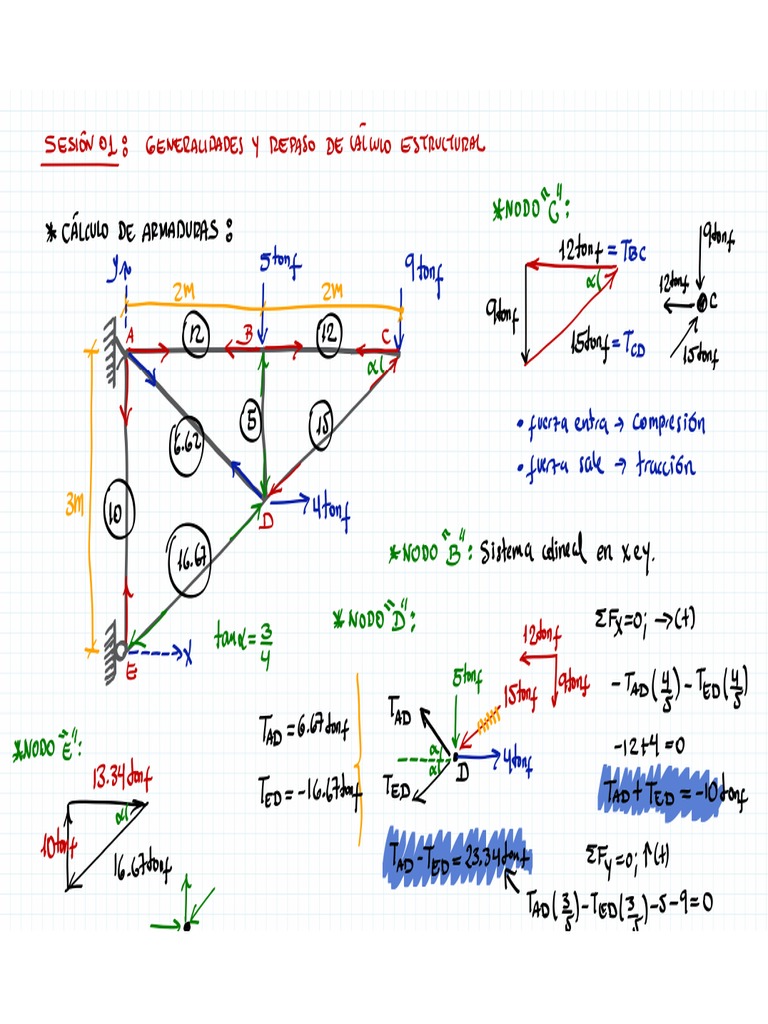 SESIÓN 01: GENERALIDADES Y REPASO DE CÁLCULO ESTRUCTURAL
* CÁLCULO DE ARMADURAS:
y
5tonf
9tonf
2M
2M
A
12
B
12
C
α
3M
10
6.62
5
15
D
4tonf
16.67
E
X
tanα = 3/4
* NODO "C":
12tonf = TBC
α
9tonf
15tonf = TCD
9tonf
12tonf
C
15tonf
• fuerza entra → compresión
• fuerza sale → tracción
* NODO "B": Sistema colineal en x e y.
* NODO "D":
12tonf
9tonf
5tonf
15tonf
TAD
α
α
D
4tonf
TED
ΣFx=0; →(+)
-TAD(4/5) - TED(4/5)
-12+4=0
TAD + TED = -10tonf
ΣFy=0; ↑(+)
TAD(3/5) - TED(3/5) - 5 - 9 = 0
TAD - TED = 23.34tonf
TAD = 6.67tonf
TED = -16.67tonf
* NODO "E":
13.34tonf
α
10tonf
16.67tonf